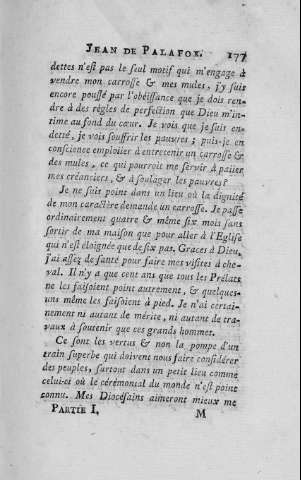 JEAN DE PALAFOX. 177
dettes n'est pas le seul motif qui m'engage à
vendre mon carrosse & mes mules, j'y suis
encore poussé par l'obéissance que je dois ren-
dre à des règles de perfection que Dieu m'in-
time au fond du cœur. Je vois que je suis en-
detté, je vois souffrir les pauvres; puis-je en
conscience emploier à entretenir un carrosse &
des mules, ce qui pourroit me servir à païer
mes créanciers, & à soulager les pauvres?
Je ne suis point dans un lieu où la dignité
de mon caractère demande un carrosse. Je passe
ordinairement quatre & même six mois sans
sortir de ma maison que pour aller à l'Eglise
qui n'est éloignée que de six pas. Graces à Dieu,
j'ai assez de santé pour faire mes visites à che-
val. Il n'y a que cent ans que tous les Prélats
ne les faisoient point autrement, & quelques-
uns même les faisoient à pied. Je n'ai certai-
nement ni autant de mérite, ni autant de tra-
vaux à soutenir que ces grands hommes.
Ce sont les vertus & non la pompe d'un
train superbe qui doivent nous faire considérer
des peuples, surtout dans un petit lieu comme
celui-ci où le cérémonial du monde n'est point
connu. Mes Diocésains aimeront mieux me
PARTIE I. M